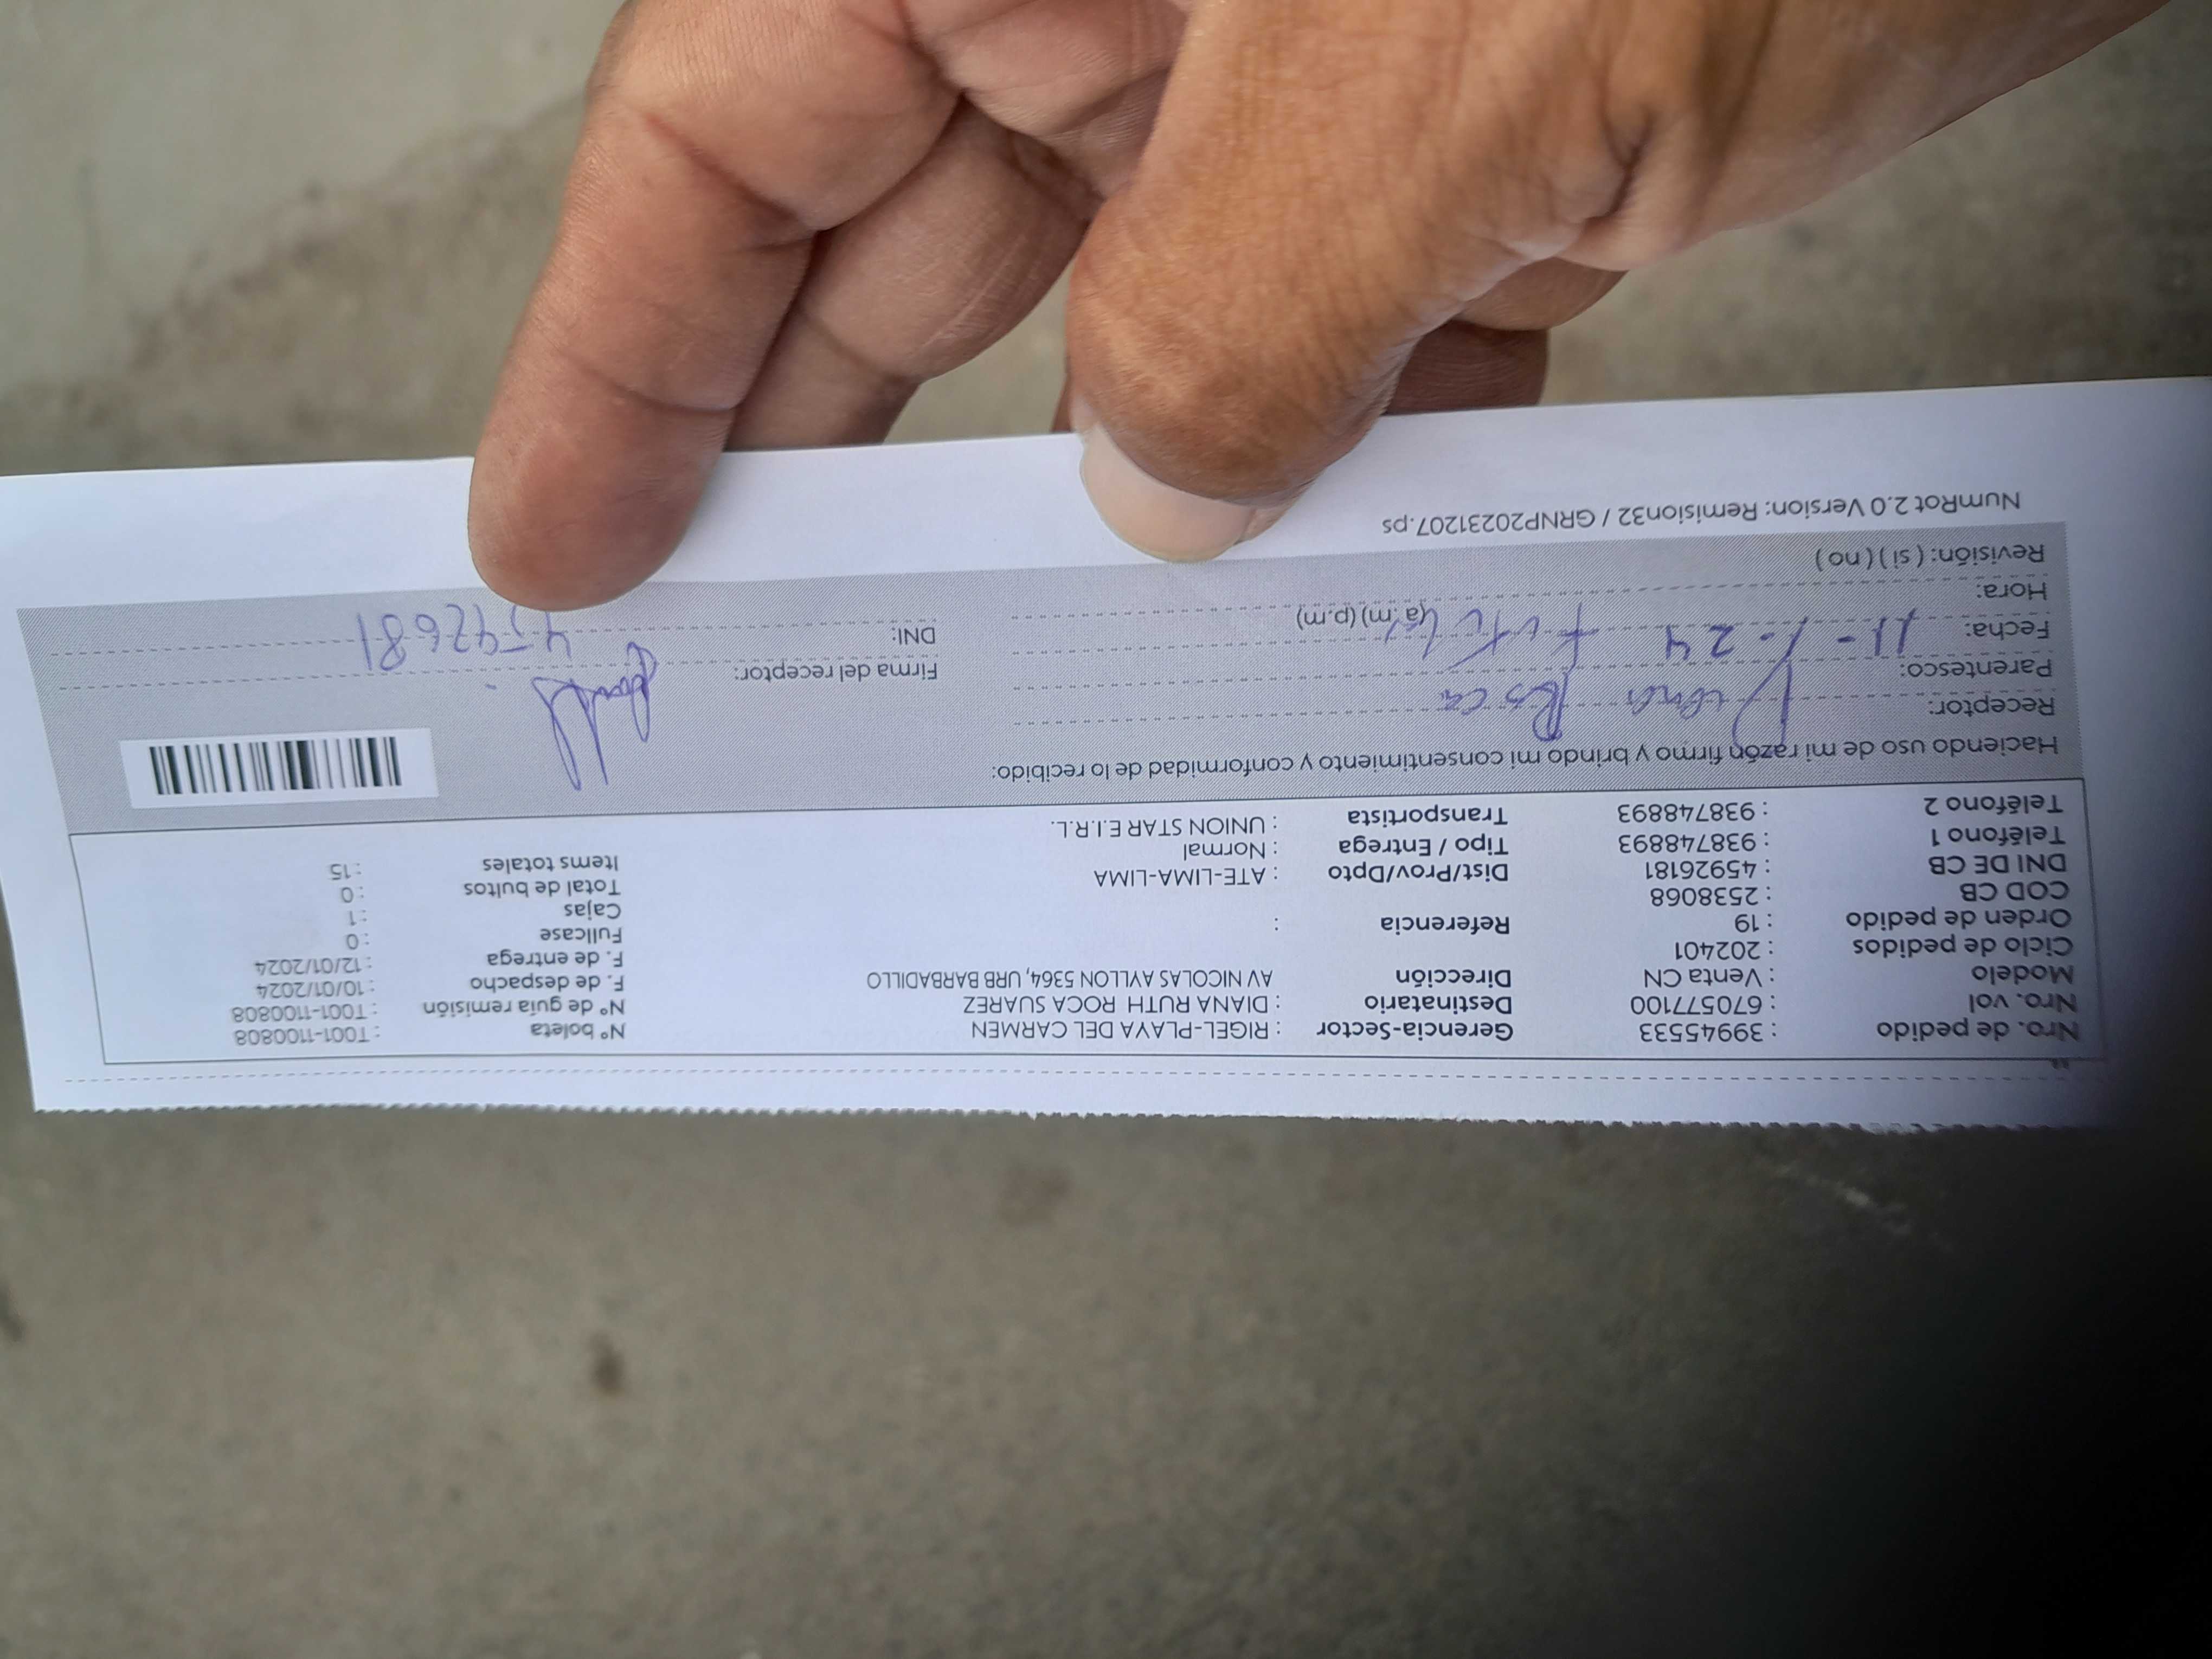 Nro. de pedido : 39945533 Gerencia-Sector : RIGEL-PLAYA DEL CARMEN N° boleta : T001-1100808
Nro. vol : 670577100 Destinatario : DIANA RUTH ROCA SUAREZ N° de guía remisión : T001-1100808
Modelo : Venta CN Dirección AV NICOLAS AYLLON 5364, URB BARBADILLO F. de despacho : 10/01/2024
Ciclo de pedidos : 202401 F. de entrega : 12/01/2024
Orden de pedido : 19 Referencia : Fullcase : 0
COD CB : 2538068 Cajas : 1
DNI DE CB : 45926181 Dist/Prov/Dpto : ATE-LIMA-LIMA Total de bultos : 0
Teléfono 1 : 938748893 Tipo / Entrega : Normal Items totales : 15
Teléfono 2 : 938748893 Transportista : UNION STAR E.I.R.L.
Haciendo uso de mi razón firmo y brindo mi consentimiento y conformidad de lo recibido:
Receptor: Diana Roca
Parentesco: Firma del receptor:
Fecha: 11-1-24 DNI:
Hora: (a.m) (p.m)
Revisión: ( si ) ( no )
NumRot 2.0 Version: Remision32 / GRNP20231207.ps